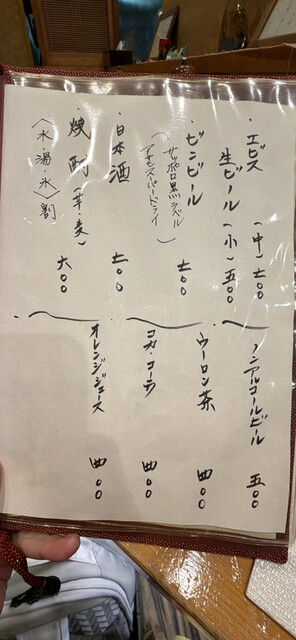 エビス
生ビール
（中）七〇〇
（小）五〇〇
ビンビール
七〇〇
（サッポロ黒ラベル
アサヒスーパードライ）
日本酒
七〇〇
焼酎（芋・麦）
六〇〇
〈水・湯・氷〉割
ノンアルコールビール
五〇〇
ウーロン茶
四〇〇
コカ・コーラ
四〇〇
オレンジジュース
四〇〇